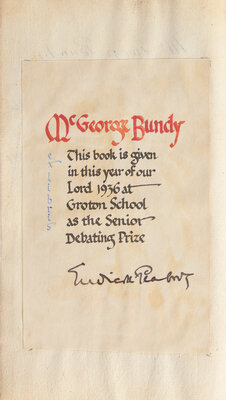 McGeorge Bundy
This book is given
in this year of our
Lord 1936 at
Groton School
as the Senior
Debating Prize
Endicott Peabody